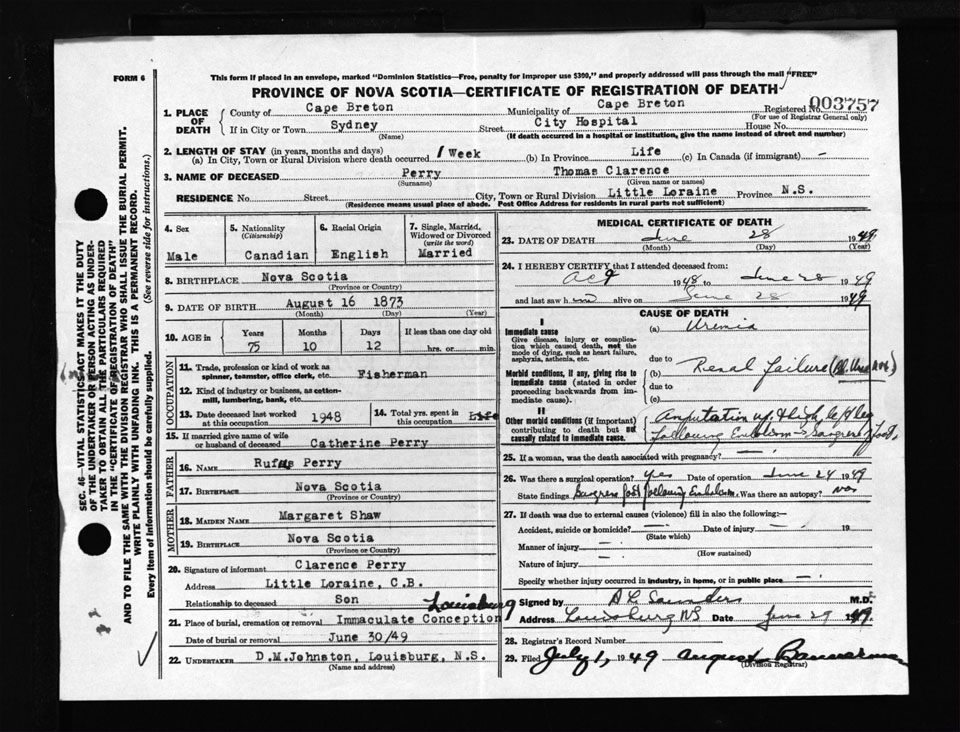 FORM 6
This form if placed in an envelope, marked "Dominion Statistics—Free, penalty for improper use $300," and properly addressed will pass through the mail "FREE"
PROVINCE OF NOVA SCOTIA—CERTIFICATE OF REGISTRATION OF DEATH
Registered No. 003757
(For use of Registrar General only)
1. PLACE OF DEATH
County of Cape Breton Municipality of Cape Breton
If in City or Town Sydney Street City Hospital House No.
(Name) (If death occurred in a hospital or institution, give the name instead of street and number)
2. LENGTH OF STAY (in years, months and days)
(a) In City, Town or Rural Division where death occurred 1 Week (b) In Province Life (c) In Canada (if immigrant) -
3. NAME OF DECEASED Perry Thomas Clarence
(Surname) (Given name or names)
RESIDENCE No. Street City, Town or Rural Division Little Loraine Province N.S.
(Residence means usual place of abode. Post Office Address for residents in rural parts not sufficient)
4. Sex
Male
5. Nationality
(Citizenship)
Canadian
6. Racial Origin
English
7. Single, Married, Widowed or Divorced
(write the word)
Married
8. BIRTHPLACE Nova Scotia
(Province or Country)
9. DATE OF BIRTH August 16 1873
(Month) (Day) (Year)
10. AGE in Years Months Days If less than one day old
75 10 12 hrs. or min.
OCCUPATION
11. Trade, profession or kind of work as spinner, teamster, office clerk, etc. Fisherman
12. Kind of industry or business, as cotton-mill, lumbering, bank, etc.
13. Date deceased last worked at this occupation 1948
14. Total yrs. spent in this occupation Life
15. If married give name of wife or husband of deceased Catherine Perry
FATHER
16. NAME Rufus Perry
17. BIRTHPLACE Nova Scotia
(Province or Country)
MOTHER
18. MAIDEN NAME Margaret Shaw
19. BIRTHPLACE Nova Scotia
(Province or Country)
20. Signature of informant Clarence Perry
Address Little Loraine, C.B.
Relationship to deceased Son
21. Place of burial, cremation or removal Immaculate Conception Louisburg
Date of burial or removal June 30/49
22. UNDERTAKER D.M.Johnston, Louisburg, N.S.
(Name and address)
MEDICAL CERTIFICATE OF DEATH
23. DATE OF DEATH June 28 1949
(Month) (Day) (Year)
24. I HEREBY CERTIFY that I attended deceased from:
1948 to June 28 1949
and last saw him alive on June 28 1949
CAUSE OF DEATH
I
Immediate cause
Give disease, injury or complication which caused death, not the mode of dying, such as heart failure, asphyxia, asthenia, etc.
(a) Uremia
due to
Morbid conditions, if any, giving rise to immediate cause (stated in order proceeding backwards from immediate cause).
(b) Renal failure
due to
(c)
II
Other morbid conditions (if important) contributing to death but not causally related to immediate cause.
Amputation up. thigh left leg
following Embolism & Gangrene foot,
25. If a woman, was the death associated with pregnancy? —
26. Was there a surgical operation? yes Date of operation June 24 1949
State findings Gangrene foot following Embolism. Was there an autopsy? no
27. If death was due to external causes (violence) fill in also the following:—
Accident, suicide or homicide? — Date of injury — 19
(State which)
Manner of injury —
(How sustained)
Nature of injury —
Specify whether injury occurred in industry, in home, or in public place —
Signed by A L Saunders M.D.
Address Louisburg NS Date June 29 1949
28. Registrar's Record Number
29. Filed July 1, 1949 August Bannerman
(Division Registrar)
SEC. 46—VITAL STATISTICS ACT MAKES IT THE DUTY
OF THE UNDERTAKER OR PERSON ACTING AS UNDER-
TAKER TO OBTAIN ALL THE PARTICULARS REQUIRED
IN THE "CERTIFICATE OF REGISTRATION OF DEATH"
AND TO FILE THE SAME WITH THE DIVISION REGISTRAR WHO SHALL ISSUE THE BURIAL PERMIT.
WRITE PLAINLY WITH UNFADING INK. THIS IS A PERMANENT RECORD.
Every item of information should be carefully supplied. (See reverse side for instructions.)